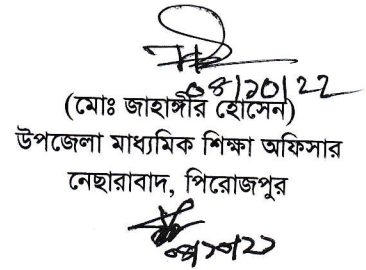 ০৪/১০/২২
(মোঃ জাহাঙ্গীর হোসেন)
উপজেলা মাধ্যমিক শিক্ষা অফিসার
নেছারাবাদ, পিরোজপুর